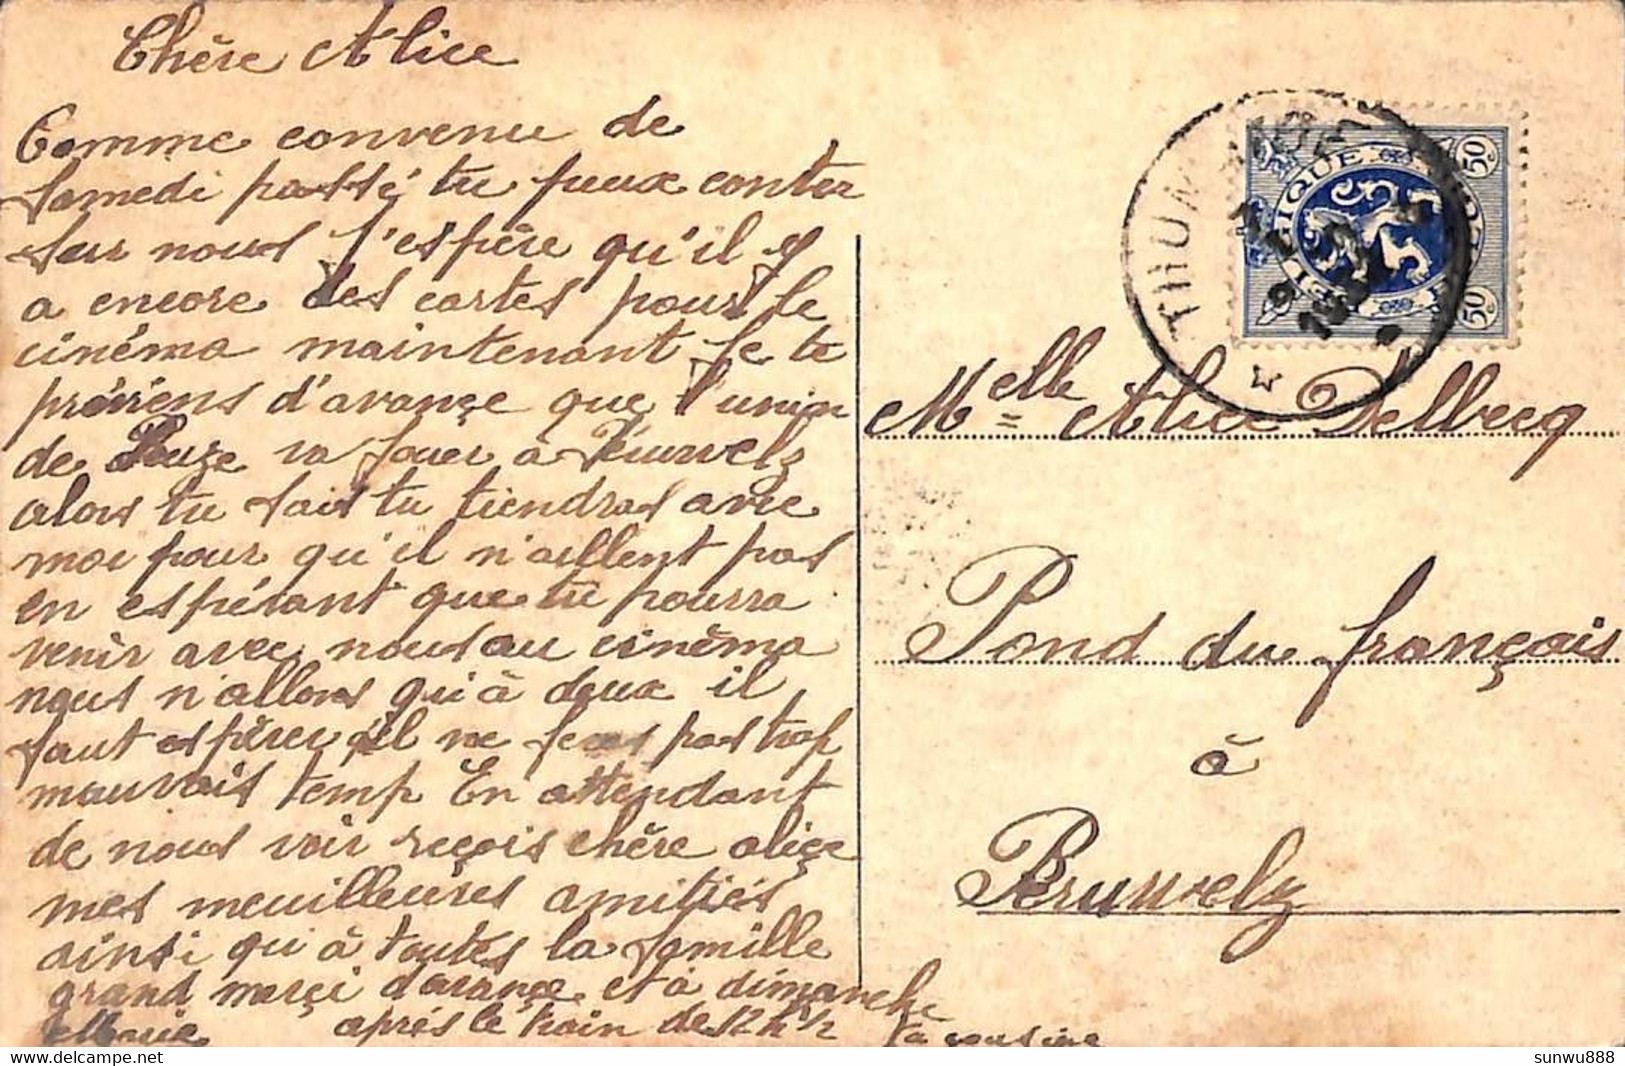 Chère Alice
Comme convenu de
samedi passé, tu peux conter
sur nous j'espère qu'il y
a encore des cartes pour le
cinéma maintenant je te
préviens d'avançe que l'union
de Leuze va jouer à Péruwelz
alors tu sais tu tiendras avec
moi pour qu'il n'aillent pas
en espérant que tu pourra
venir avec nous au cinéma
nous n'allons qu'à deux il
faut espérer qu'il ne feras pas trop
mauvais temp En attendant
de nous voir reçois chère aliçe
mes meuilleures amitiés
ainsi qu'à toutes la famille
grand merçi d'avançe et à dimanche
après le train de 12 h 1/2
Marie
ta cousine
BELGIQUE
50c
50c
THUM
Melle Alice Delbecq
Pond du français
à
Péruwelz
sunwu888